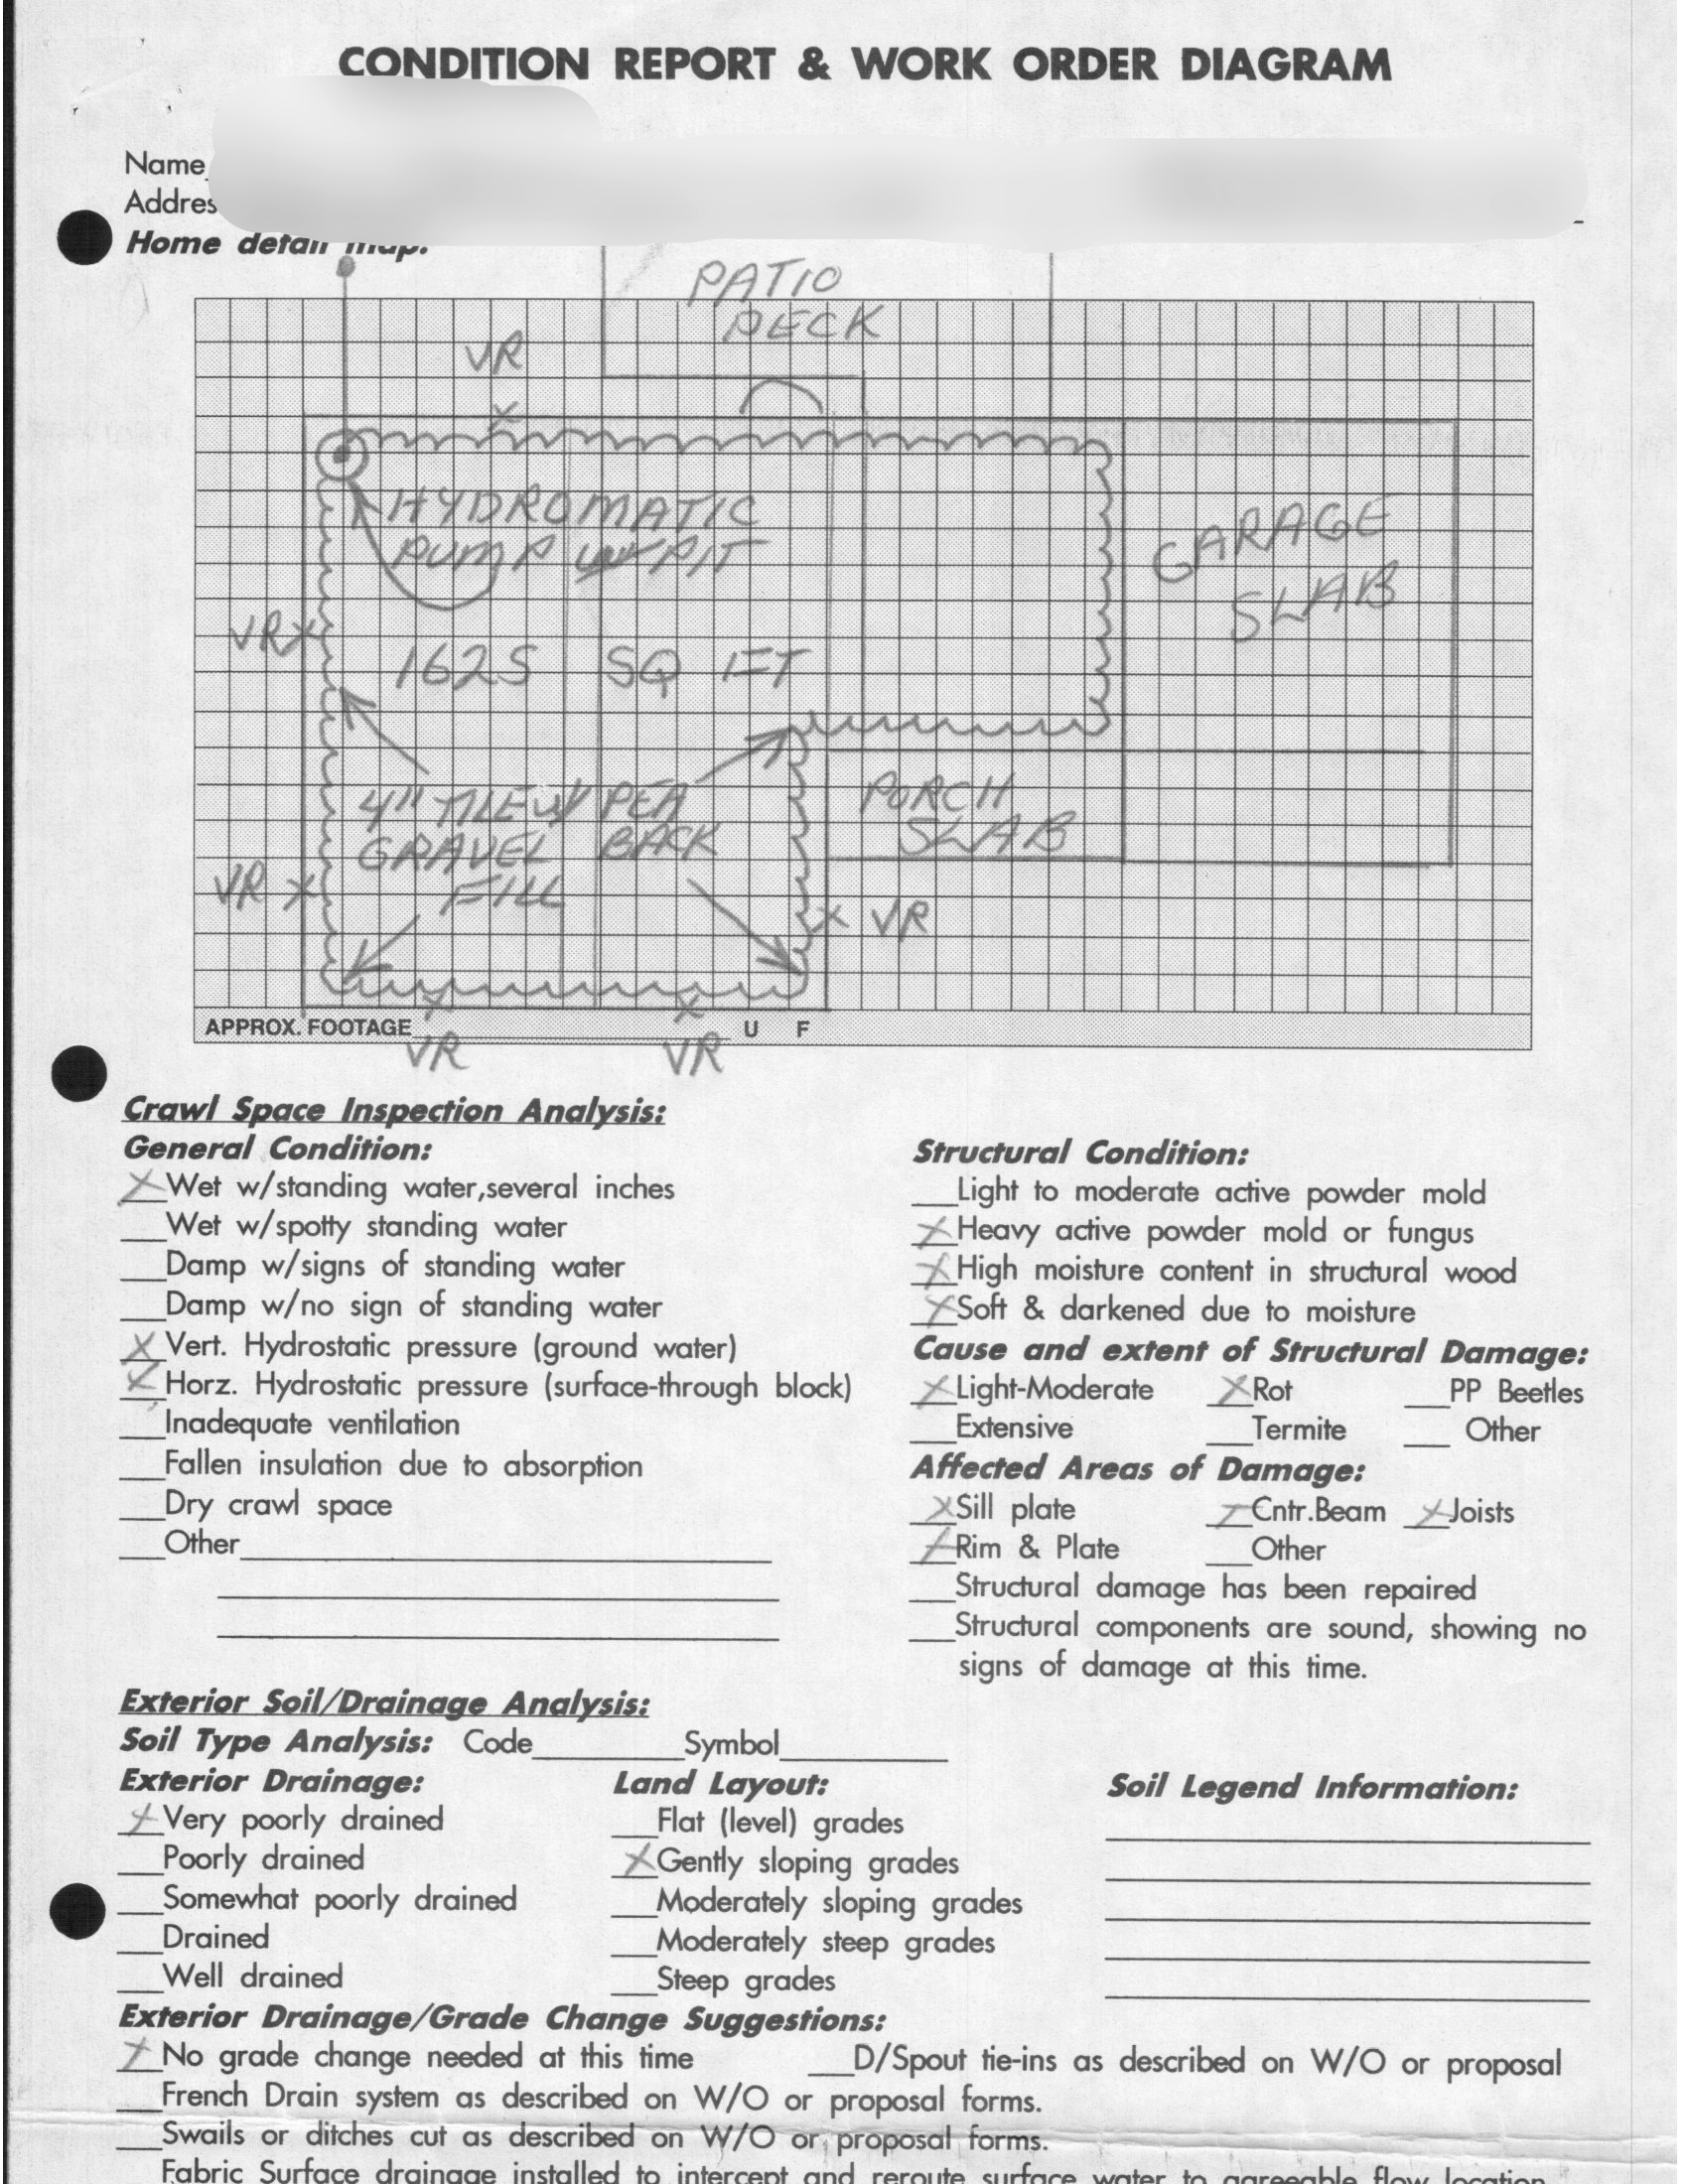 CONDITION REPORT & WORK ORDER DIAGRAM
Name
Addres
Home detail map:
PATIO
DECK
VR
X
HYDROMATIC
PUMP W/PIT
GARAGE
SLAB
VR X
1625 SQ FT
4" TILE W/ PEA
GRAVEL BACK
FILL
PORCH
SLAB
VR X
X VR
X X
APPROX. FOOTAGE U F
VR VR
Crawl Space Inspection Analysis:
General Condition:
X Wet w/standing water,several inches
Wet w/spotty standing water
Damp w/signs of standing water
Damp w/no sign of standing water
X Vert. Hydrostatic pressure (ground water)
X Horz. Hydrostatic pressure (surface-through block)
Inadequate ventilation
Fallen insulation due to absorption
Dry crawl space
Other
Structural Condition:
Light to moderate active powder mold
X Heavy active powder mold or fungus
X High moisture content in structural wood
X Soft & darkened due to moisture
Cause and extent of Structural Damage:
X Light-Moderate X Rot PP Beetles
Extensive Termite Other
Affected Areas of Damage:
X Sill plate X Cntr.Beam X Joists
X Rim & Plate Other
Structural damage has been repaired
Structural components are sound, showing no
signs of damage at this time.
Exterior Soil/Drainage Analysis:
Soil Type Analysis: Code Symbol
Exterior Drainage:
X Very poorly drained
Poorly drained
Somewhat poorly drained
Drained
Well drained
Land Layout:
Flat (level) grades
X Gently sloping grades
Moderately sloping grades
Moderately steep grades
Steep grades
Soil Legend Information:
Exterior Drainage/Grade Change Suggestions:
X No grade change needed at this time D/Spout tie-ins as described on W/O or proposal
French Drain system as described on W/O or proposal forms.
Swails or ditches cut as described on W/O or proposal forms.
Fabric Surface drainage installed to intercept and reroute surface water to agreeable flow location